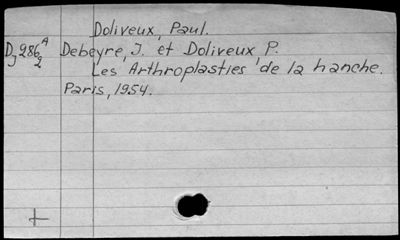 Doliveux, Paul.
Dj 286 A 2 Debeyre, J. et Doliveux P.
Les Arthroplasties de la hanche.
Paris, 1954.